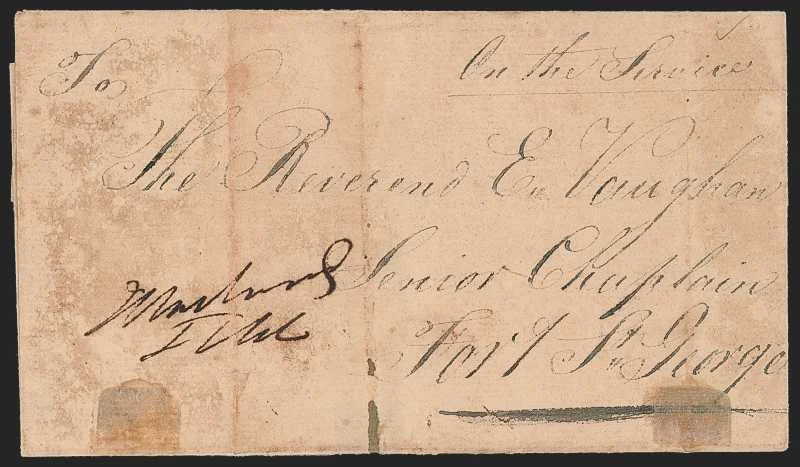 On the Service
To
The Reverend E. Vaughan
Senior Chaplain
Fort St. George